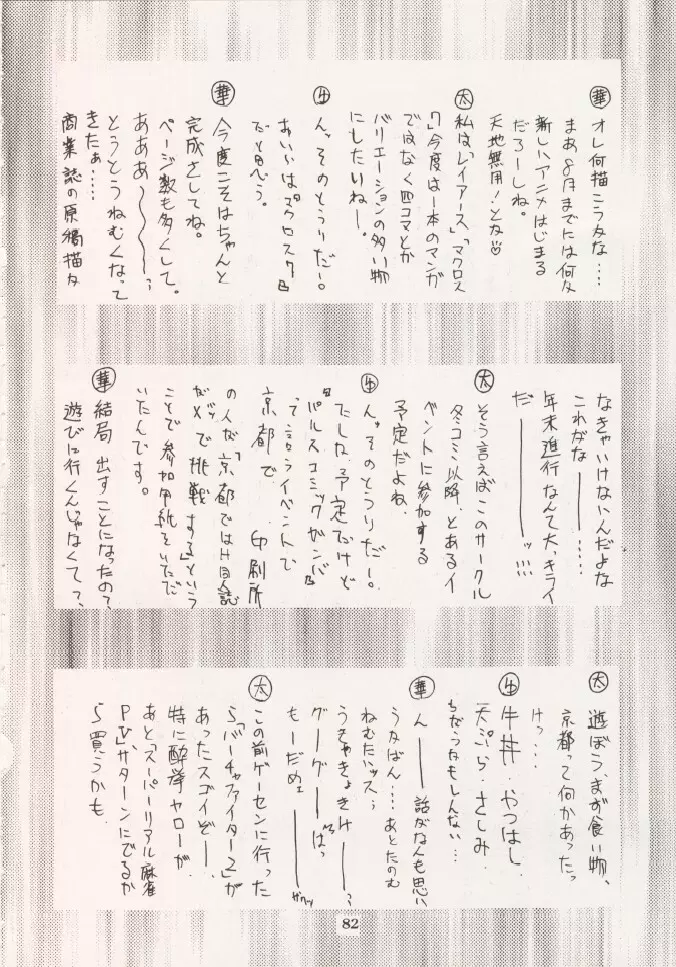 華 オレ何描こうかな‥‥
まあ8月までには何か
新しいアニメはじまる
だろーしね。
天地無用!とか♡
太 私は「レイアース」「マクロス
7」今度は一本のマンガ
ではなく四コマとか
バリエーションの多い物
にしたいねー。
牛 ん〟そのとうりだー。
だと思う。
華 今度こそはちゃんと
完成さしてね。
ページ数も多くして。
あああ〜〜〜〜
とうとうねむくなって
きたぁ‥‥‥
商業誌の原稿描か
なきゃいけないんだよな
これがな――‥‥
年末進行なんて大、キライ
だ―――ッ!!!
太 そう言えばこのサークル
冬コミ以降、とあるイ
ベントに参加する
予定だよね
牛 ん〟そのとうりだー。
たしか予定だけど
『パルスコミックガンバ』
って言うイベントで
京都で 印刷所
の人が「京都ではH同人誌
で挑戦する」という
ことで参加用紙をいただ
いたんです。
華 結局 出すことになったの?
遊びに行くんじゃなくて?、
太 遊ぼう、まず食い物、
京都って何かあったっ
けっ‥‥
牛 牛丼・やつはし
天ぷら・さしみ
ちがうかもしんない‥‥
華 ん―― 話がなんも思い
うかばん‥‥あとたのむ
ねむたいッス;
うきゃきょきけ――
グーグー――
もーだめェ――
太 この前ゲーセンに行った
ら「バーチャファイター2」が
あったスゴイぞ――
特に酔拳ヤローが
あと「スーパーリアル麻雀
PⅤ」サターンにでるか
ら買うかも
82